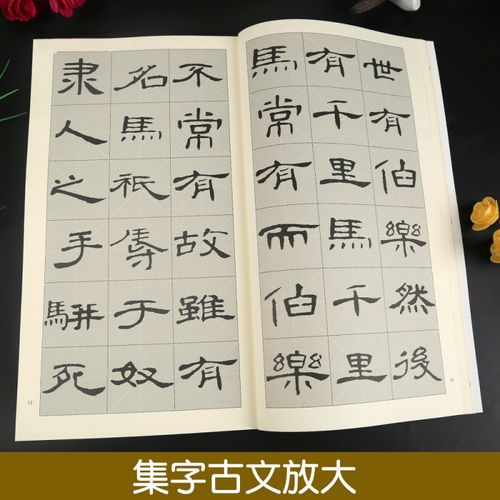 世有伯樂然後
有千里馬千里
馬常有而伯樂
不常有故雖有
名馬祇辱于奴
隶人之手駢死
集字古文放大